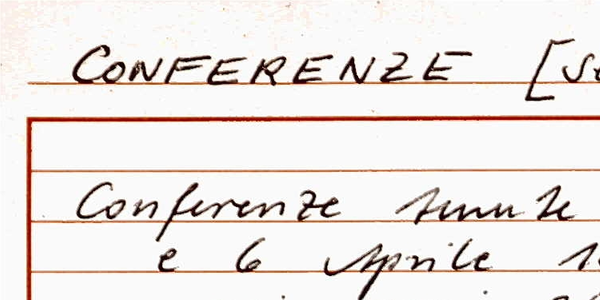 CONFERENZE
Conferenze tenute
e 6 Aprile